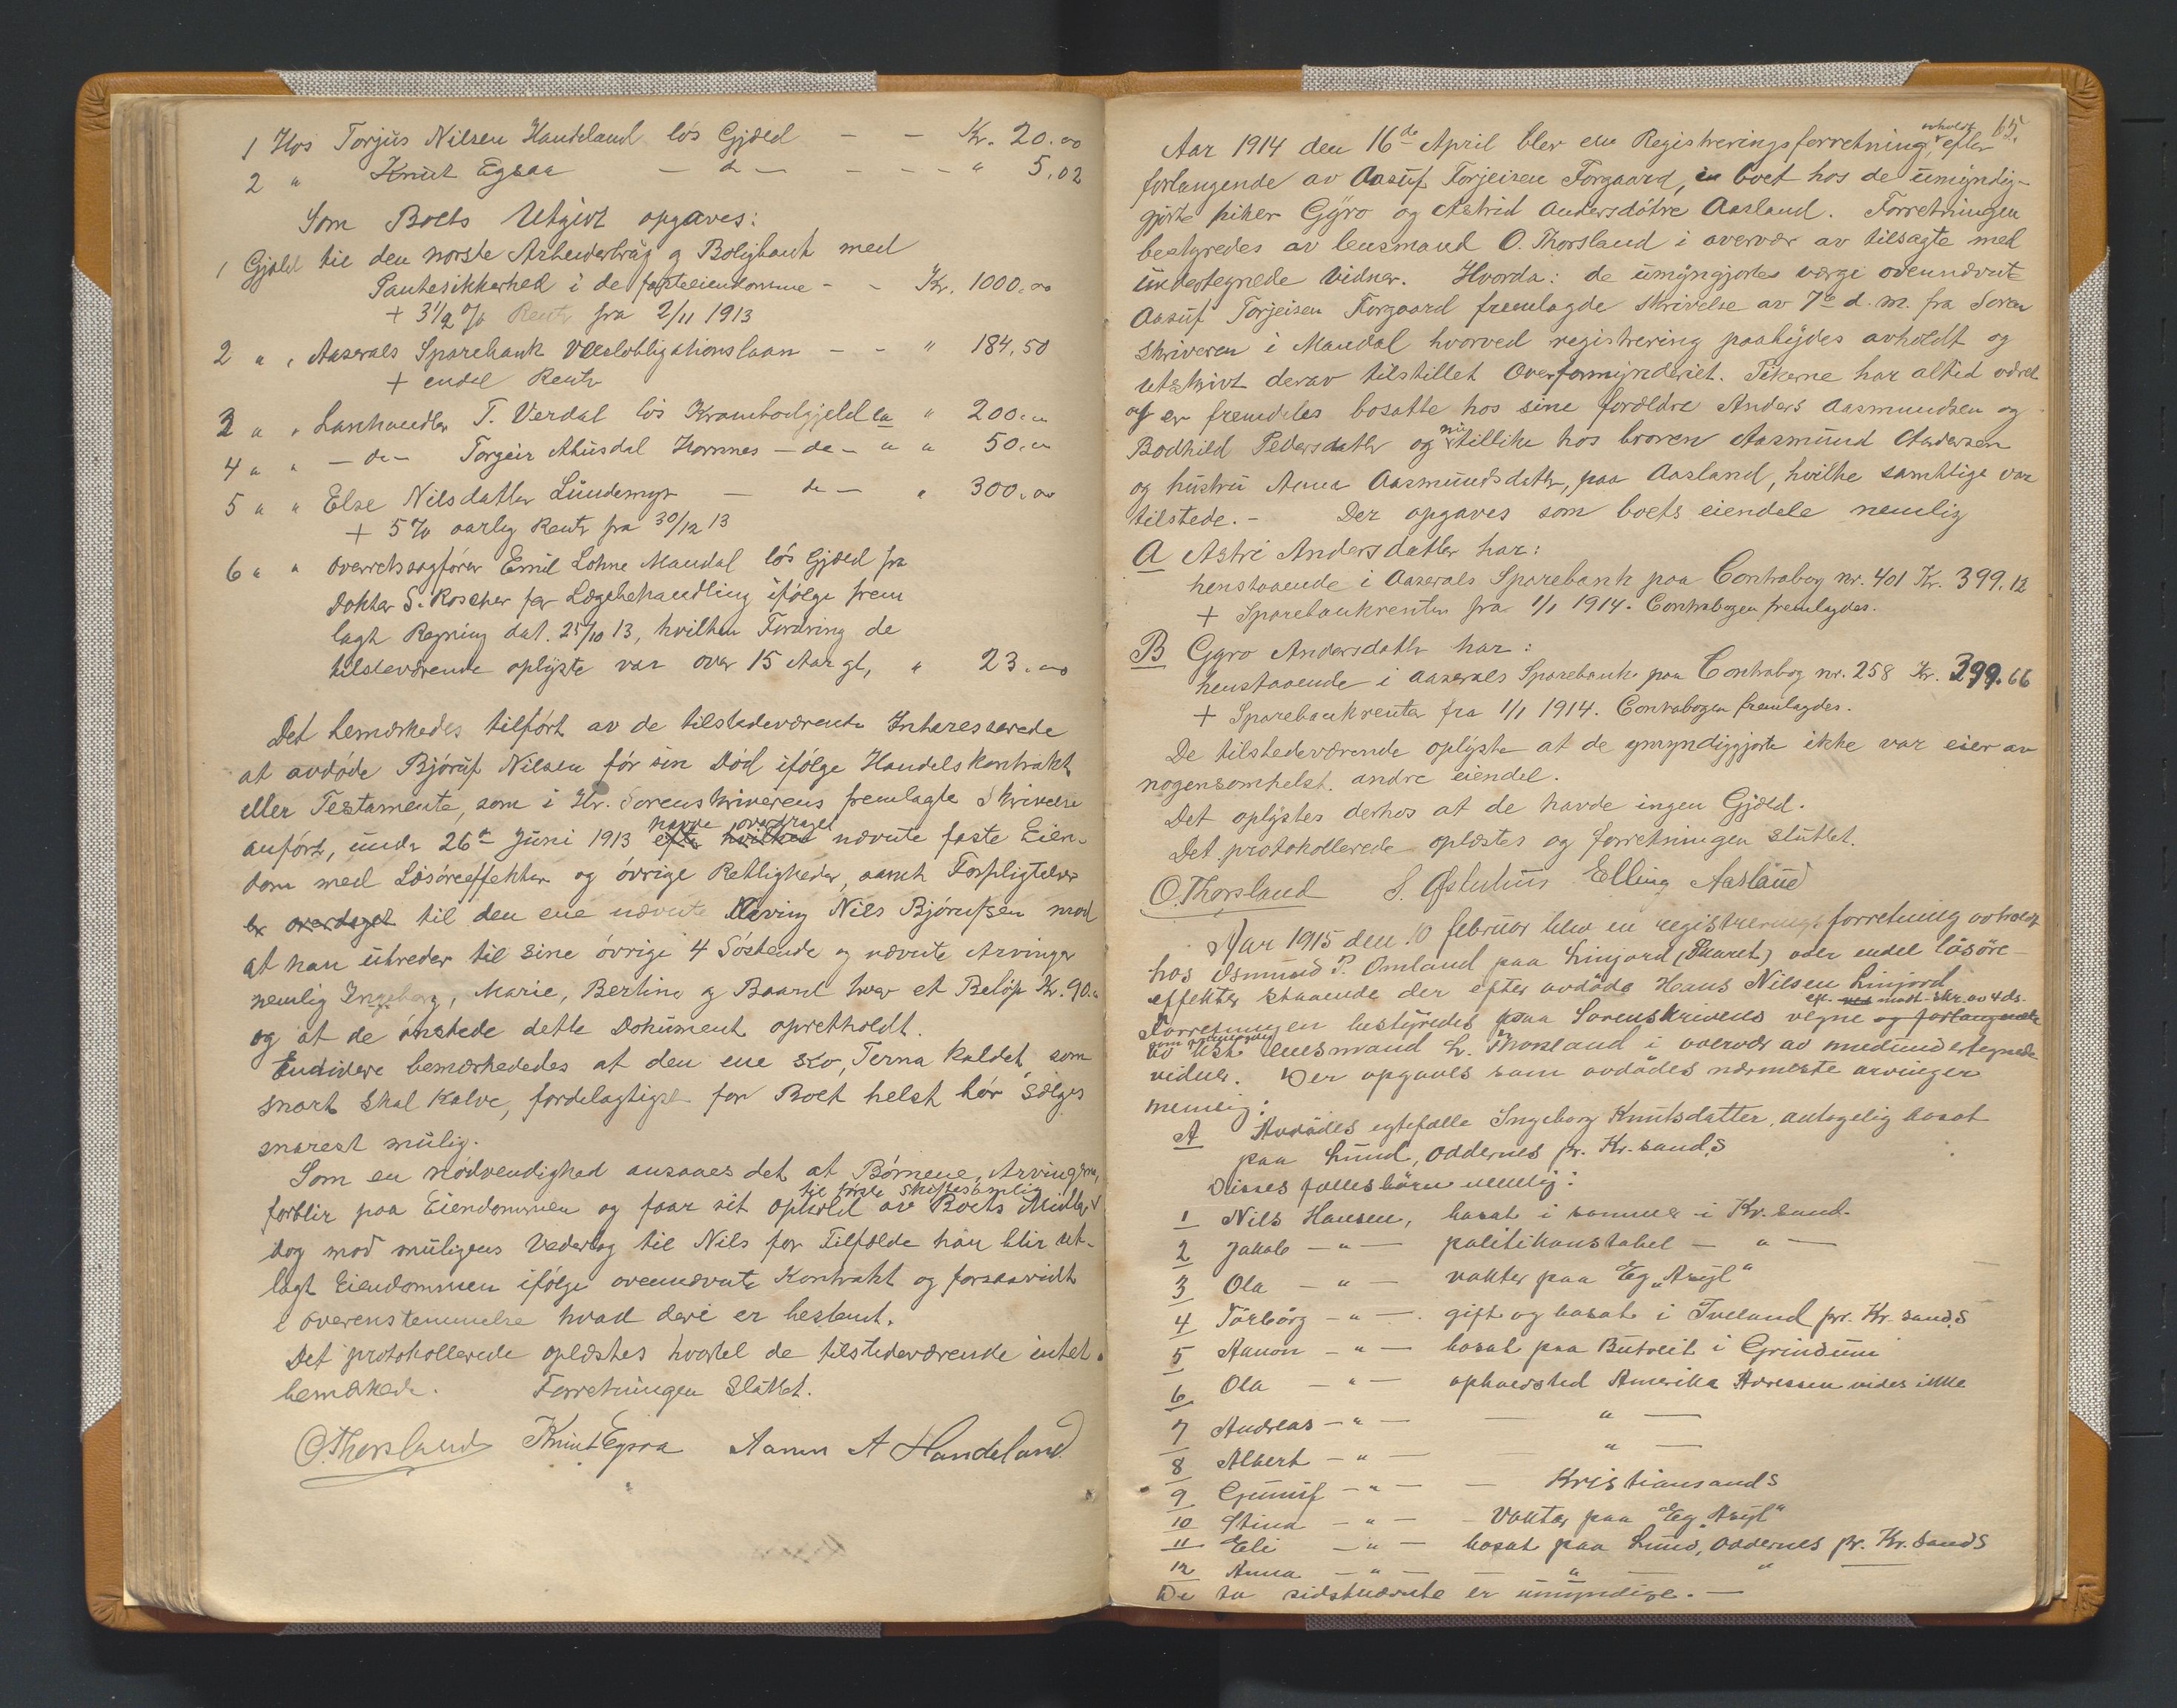 1 Hos Torjus Nilsen Handeland løs Gjæld — — Kr. 20.00
2 " Knut Egsaa — do — — — — " 5,02
Som Boets Utgivt opgaves:
1 Gjæld til den norske Arbeiderbrug og Boligbank med
Pantesikkerhed i de faste eiendomme - - Kr. 1000.00
+ 3 1/2 % Rente fra 2/11 1913
2 " " Aaserals Sparebank Vexelobligationslaan - - " 184,50
+ endel Rente
3 " " Lanhandler T. Verdal løs Krambodgjeld ca " 200.00
4 " " - do - Torgeir Ahusdal Hornnes - do - " " 50.00
5 " " Else Nilsdatter Lundemyr — do — " 300.00
+ 5 % aarlig Rente fra 30/12 13
6 " " Overretssagfører Emil Lohne Mandal løs Gjæld fra
Doktor S. Roscher for Lægebehandling ifølge frem
lagt Regning dat. 25/10 13, hvilken Fordring de
tilsteværende oplyste var over 15 Aar gl, " 23.00
Det bemærkedes tilført av de tilstedeværende Interesserede
at avdøde Bjørulf Nilsen før sin Død ifølge Handelskontrakt
eller Testamente, som i Hr. Sorenskriverens fremlagte Skrivelse
anført, under 26de Juni 1913 efter hvilket havde overdraget nævnte faste Eien-
dom med Løsøreeffekter og øvrige Rettigheder, samt Forpligtelser
er overdraget til den ene nævnte Arving Nils Bjørufsen mod
at han utreder til sine øvrige 4 Søskende og nævnte Arvinger
nemlig Ingeborg, Marie, Bertine og Baard hver et Beløp Kr. 90.00
og at de ønskede dette Dokument opretholdt.
Endvidere bemærkededes at den ene Ko, Terna kaldet, som
snart skal kalve, fordelagtigst for Boet helst bør sælges
snarest mulig.
Som en nødvendighed ansaaes det at Børnene, Arvingerne,
forblir paa Eiendommen og faar sit ophold til første Skiftesamling av Boets Midler
dog mod muligens Vederlag til Nils for Tilfælde han blir ut-
lagt Eiendommen ifølge ovennævnte Kontrakt og forsaavidt
i overenstemmelse hvad deri er bestemt.
Det protokollerede oplæstes hvortil de tilstedeværende intet
bemærkede. Forretningen Sluttet.
O. Thorsland Knut Egsaa Aanen A Handeland
65.
Aar 1914 den 16de April blev en Registreringsforretning, avholdt efter
forlangende av Aasuf Torjeisen Forgaard, i boet hos de umyndig-
gjorte piker Gyro og Astrid Andersdøtre Aasland. Forretningen
bestyredes av lensmand O. Thorsland i overvær av tilsagte med
undertegnede vidner. Hvorda: de umyngjortes værge ovennævnte
Aasuf Torjeisen Forgaard fremlagde skrivelse av 7de d. m. fra Soren
skriveren i Mandal hvorved registrering paabydes avholdt og
utskrivt derav tilstillet Overformynderiet. Pikerne har altid været
og er fremdeles bosatte hos sine forældre Anders Aasmundsen og
Bodhild Pedersdatter og nu tillike hos broren Aasmund Andersen
og hustru Anna Aasmundsdatter, paa Aasland, hvilke samtlige var
tilstede. - Der opgaves som boets eiendele nemlig
A Astri Andersdatter har:
henstaaende i Aaserals Sparebank paa Contrabog nr. 401 Kr. 399.12
+ Sparebankrenter fra 1/1 1914. Contrabogen fremlagdes.
B Gyro Andersdatter har:
henstaaende i Aaserals Sparebank paa Contrabog nr. 258 Kr. 399.66
+ Sparebankrenter fra 1/1 1914. Contrabogen fremlagdes.
De tilstedeværende oplyste at de ymyndiggjorte ikke var eier av
nogensomhelst andre eiendel.
Det oplystes derhos at de havde ingen Gjæld.
Det protokollerede oplæstes og forretningen sluttet.
O. Thorsland S. Østerhus Elling Aasland
Aar 1915 den 10 februar blev en registreringsforretning avholdt
hos Osmund P. Omland paa Linjord (Haaret) over endel løsøre-
effekter staaende der efter avdøde Hans Nilsen Linjord
Forretningen bestyredes paa Sorenskriverens vegne eft. modt. skr. av 4 ds. og forlangende
av lensmand O. Thorsland i overvær av medundertegnede
vidner. Der opgaves som avdødes nærmeste arvinger
nemlig:
A Avdødes egtefælle Ingeborg Knutsdatter, antagelig bosat
paa Lund, Oddernes pr. Kr.sand.S
Disses fællesbørn nemlig:
1 Nils Hansen, bosat i samme i Kr.sand.
2 Jakob — " — politikonstabel — " —
3 Ola — " — vakter paa Eg "Asyl"
4 Torborg — " — gift og bosat i Tveland pr. Kr.sand.S
5 Aanon — " — bosat paa Butveit i Grindum
6 Ola — " — opholdsted Amerika Adressen vides ikke
7 Andreas — " — — " —
8 Albert — " — — " —
9 Gunuf — " — — Kristiansand S
10 Stina — " — - Vakter paa "Eg Asyl"
11 Eli — " — bosat paa Lund, Oddernes pr. Kr.sand S
12 Anna — " — — " — " —
De to sidstnævnte er umyndige. —